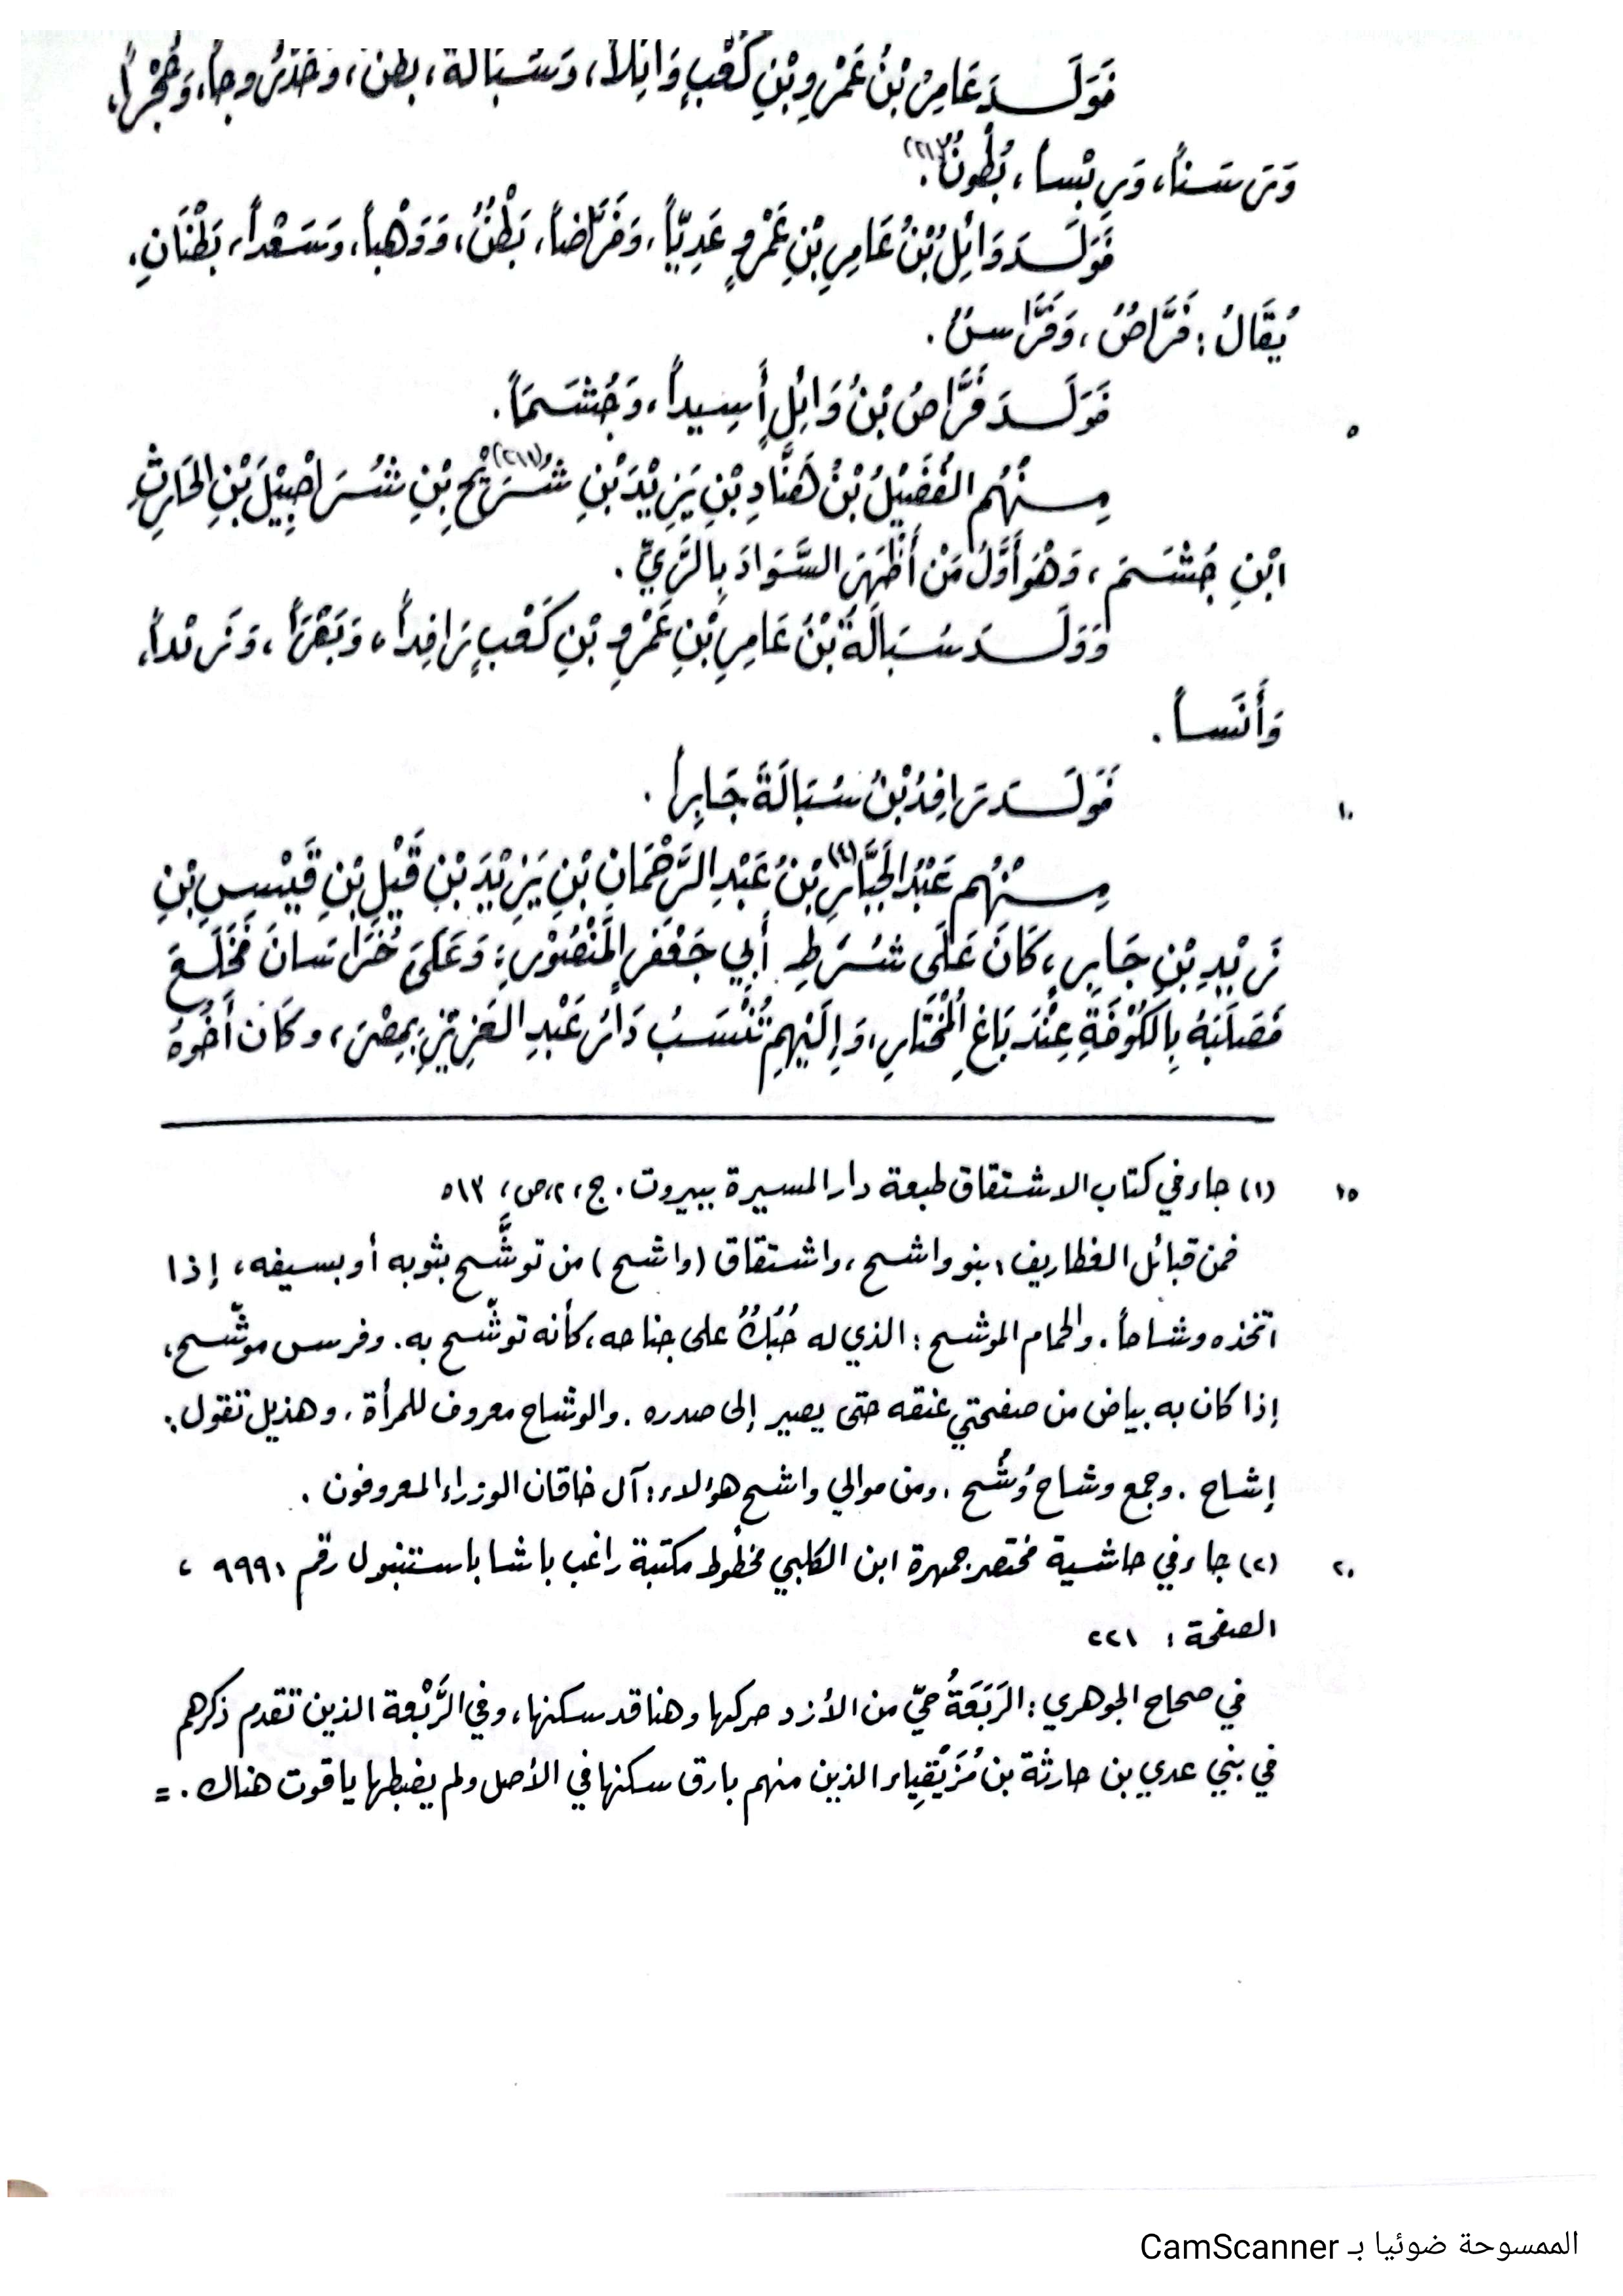 فَوَلَـدَ عَامِرُ بْنُ عَمْرِو بْنِ كَعْبٍ وَائِلاً، وَسَبَالَةَ، بطن، وحَدْرُوجاً، وَحُجْراً،
وَرَسَناً، وَرِبْساً، بُطُونٌ.
فَوَلَـدَ وَائِلُ بْنُ عَامِرِ بْنِ عَمْرٍو عَدِيّاً، وَفَرَّاضاً، بَطْنٌ، وَوَهْباً، وَسَعْداً، بَطْنَانِ.
يُقَالُ: فَرَّاصٌ، وَفَرَّاسٌ.
فَوَلَـدَ فَرَّاصُ بْنُ وَائِلٍ أَسِيداً، وَجُشَمَاً. ٥
مِـنْهُم الفُضَيْلُ بْنُ هَنَّادِ بْنِ يَزِيْدَ بْنِ شُرَيْحِ بْنِ شُرَاحِبِيْلَ بْنِ الحَارِثِ
ابْنِ جُشَمَ، وَهْوَ أَوَّلُ مَنْ أَظْهَرَ السَّوَادَ بِالرَّيِّ.
وَوَلَـدَ سَبَالَةُ بْنُ عَامِرِ بْنِ عَمْرِو بْنِ كَعْبٍ رَافِداً، وَبَقَرَاً، وَزَنْداً،
وَأَنَساً.
فَوَلَـدَ رَافِدُ بْنُ سُبَالَةَ جَابِراً. ١٠
مِـنْهُم عَبْدُ الجَبَّارِ بْنُ عَبْدِ الرَّحْمَانِ بْنِ يَزِيْدَ بْنِ قَيْلِ بْنِ قَيْسِ بْنِ
زَيْدِ بْنِ جَابِرٍ، كَانَ عَلَى شُرَطِ أَبِي جَعْفَرٍ المَنْصُوْرِ، وَعَلَى خُرَاسَانَ فَخَلَعَ
فَصَلَبَهُ بِالكُوْفَةِ عِنْدَ بَاغِ المُخْتَارِ، وَإِلَيْهِم تُنْسَبُ دَارُ عَبْدِ العَزِيْزِ بِمِصْرَ، وكَانَ أَخُوهُ
(١) جاء في كتاب الاشتقاق طبعة دار المسيرة ببيروت. ج، ٢، ص، ٥١٣ ١٥
فمن قبائل الغطاريف: بنو واشح، واشتقاق (واشح) من توشَّح بثوبه أو بسيفه، إذا
اتخذه وشاحاً. والحمام الموشح: الذي له حُبُكٌ على جناحه، كأنه توشّح به. وفرس موشّح،
إذا كان به بياض من صفحتي عنقه حتى يصير إلى صدره. والوشاح معروف للمرأة. وهذيل تقول:
إشاح. وجمع وشاح وُشُح. ومن موالي واشح هؤلاء: آل خاقان الوزراء المعروفون.
(٢) جاء في حاشية مختصر جمهرة ابن الكلبي مخطوط مكتبة راغب باشا باستنبول رقم ٩٩٩، ٢٠
الصفحة: ٢٢١
في صحاح الجوهري: الرَبَعَةُ حيّ من الأزد حركها وهنا قد سكنها، وفي الرَّبْعة الذين تقدم ذكرهم
في بني عدي بن حارثة بن مُزَيْقِياء الذين منهم بارق سكنها في الأصل ولم يضبطها ياقوت هناك. =
الممسوحة ضوئيا بـ CamScanner